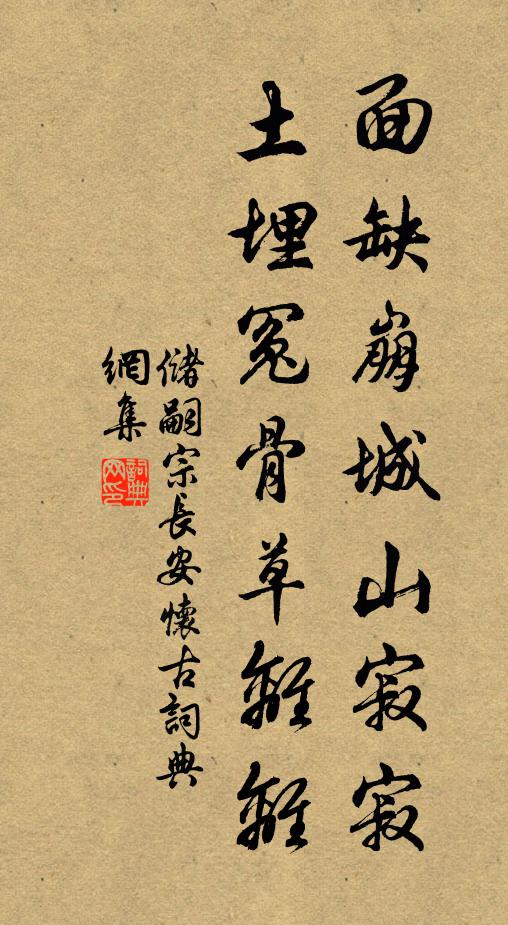 面缺崩城山寂寂
土埋冤骨草離離
儲嗣宗長安懷古詞典
網集
詞典網印